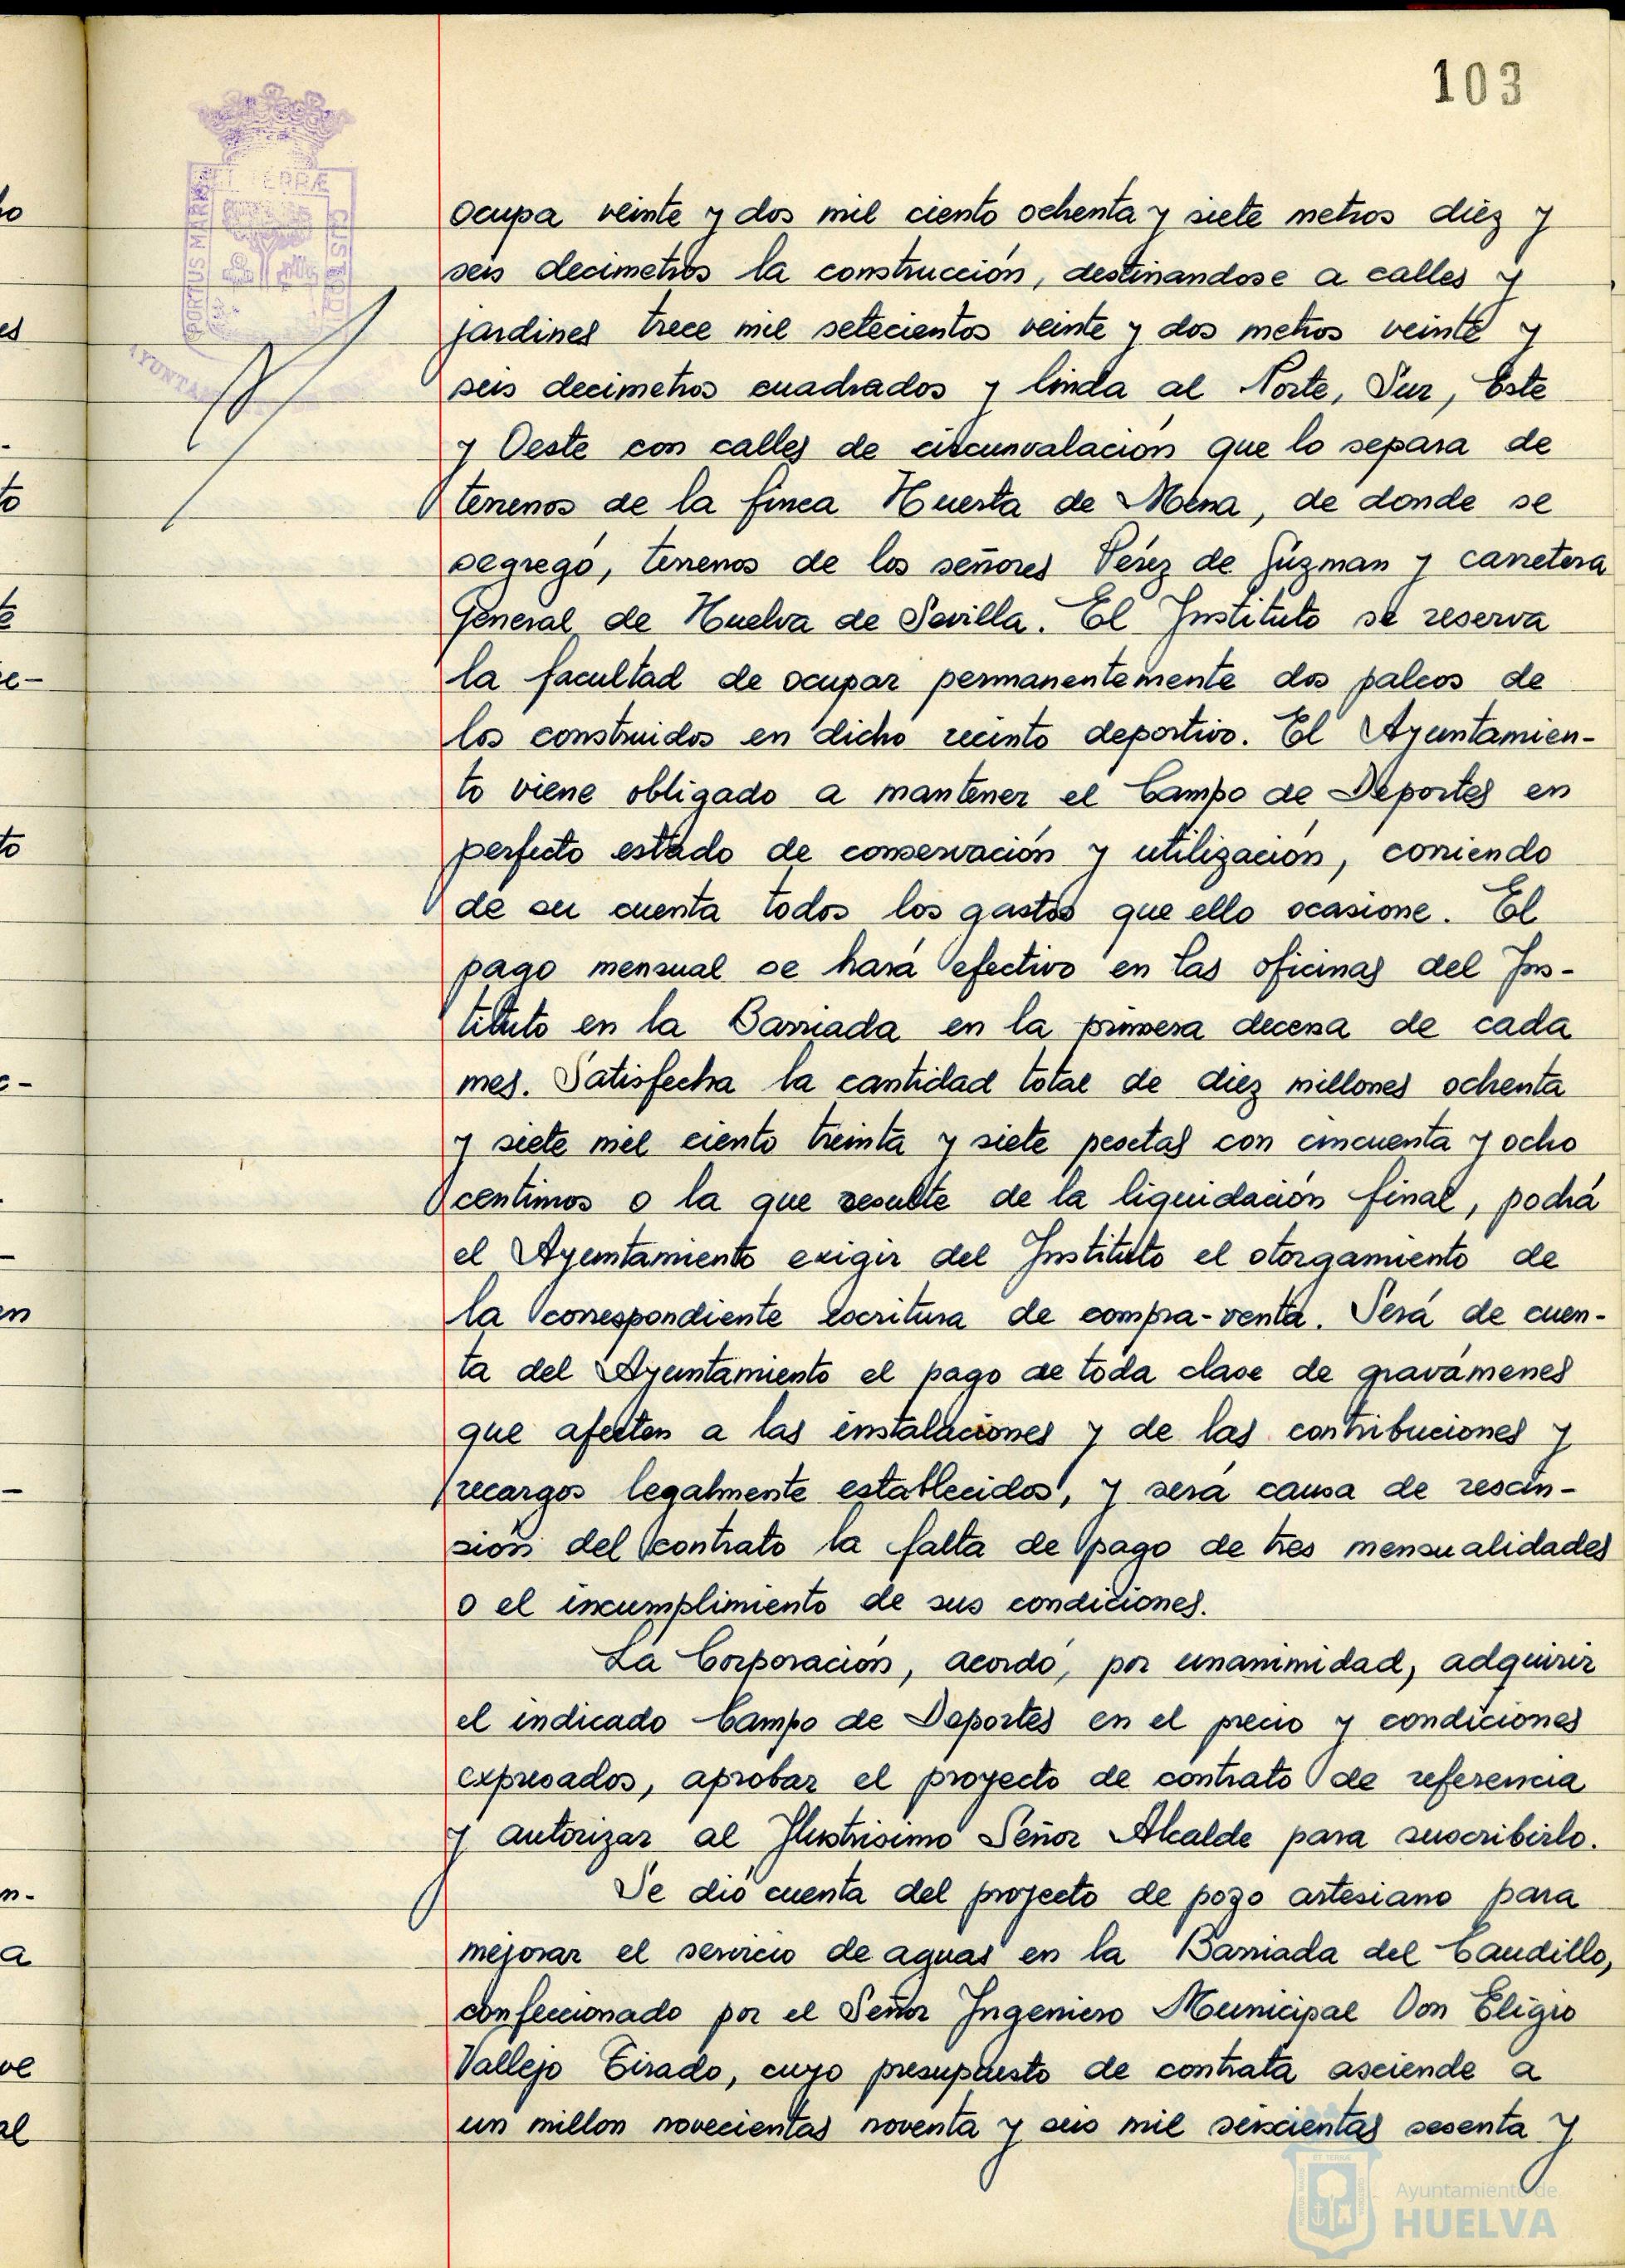 103
PORTUS MARIS ET TERRÆ CUSTOD
ocupa veinte y dos mil ciento ochenta y siete metros diez y
seis decimetros la construcción, destinandose a calles y
jardines trece mil setecientos veinte y dos metros veinte y
seis decimetros cuadrados y linda al Norte, Sur, Este
y Oeste con calles de circunvalación que lo separa de
terrenos de la finca Huerta de Mena, de donde se
segregó, terrenos de los señores Pérez de Gúzman y carretera
General de Huelva de Sevilla. El Instituto se reserva
la facultad de ocupar permanentemente dos palcos de
los construidos en dicho recinto deportivo. El Ayuntamien-
to viene obligado a mantener el Campo de Deportes en
perfecto estado de conservación y utilización, corriendo
de su cuenta todos los gastos que ello ocasione. El
pago mensual se hará efectivo en las oficinas del Ins-
tituto en la Barriada en la primera decena de cada
mes. Satisfecha la cantidad total de diez millones ochenta
y siete mil ciento treinta y siete pesetas con cincuenta y ocho
centimos o la que resulte de la liquidación final, podrá
el Ayuntamiento exigir del Instituto el otorgamiento de
la correspondiente escritura de compra-venta. Será de cuen-
ta del Ayuntamiento el pago de toda clase de gravámenes
que afecten a las instalaciones y de las contribuciones y
recargos legalmente establecidos, y será causa de rescin-
sión del contrato la falta de pago de tres mensualidades
o el incumplimiento de sus condiciones.
La Corporación, acordó, por unanimidad, adquirir
el indicado Campo de Deportes en el precio y condiciones
expresados, aprobar el proyecto de contrato de referencia
y autorizar al Ilustrisimo Señor Alcalde para suscribirlo.
Se dió cuenta del proyecto de pozo artesiano para
mejorar el servicio de aguas en la Barriada del Caudillo,
confeccionado por el Señor Ingeniero Municipal Don Eligio
Vallejo Tirado, cuyo presupuesto de contrata asciende a
un millon novecientas noventa y seis mil seiscientas sesenta y
Ayuntamiento de
HUELVA